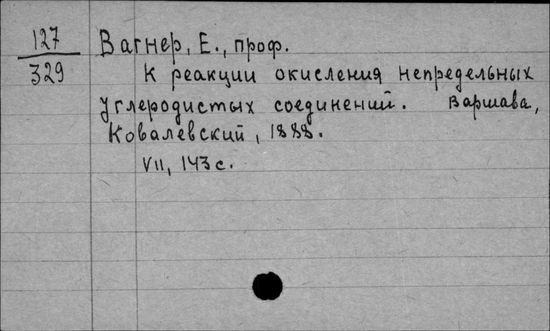 127 Вагнер, Е., проф.
329 К реакции окисления непредельных
углеродистых соединений. Варшава,
Ковалевский, 1888.
VII, 143 с.